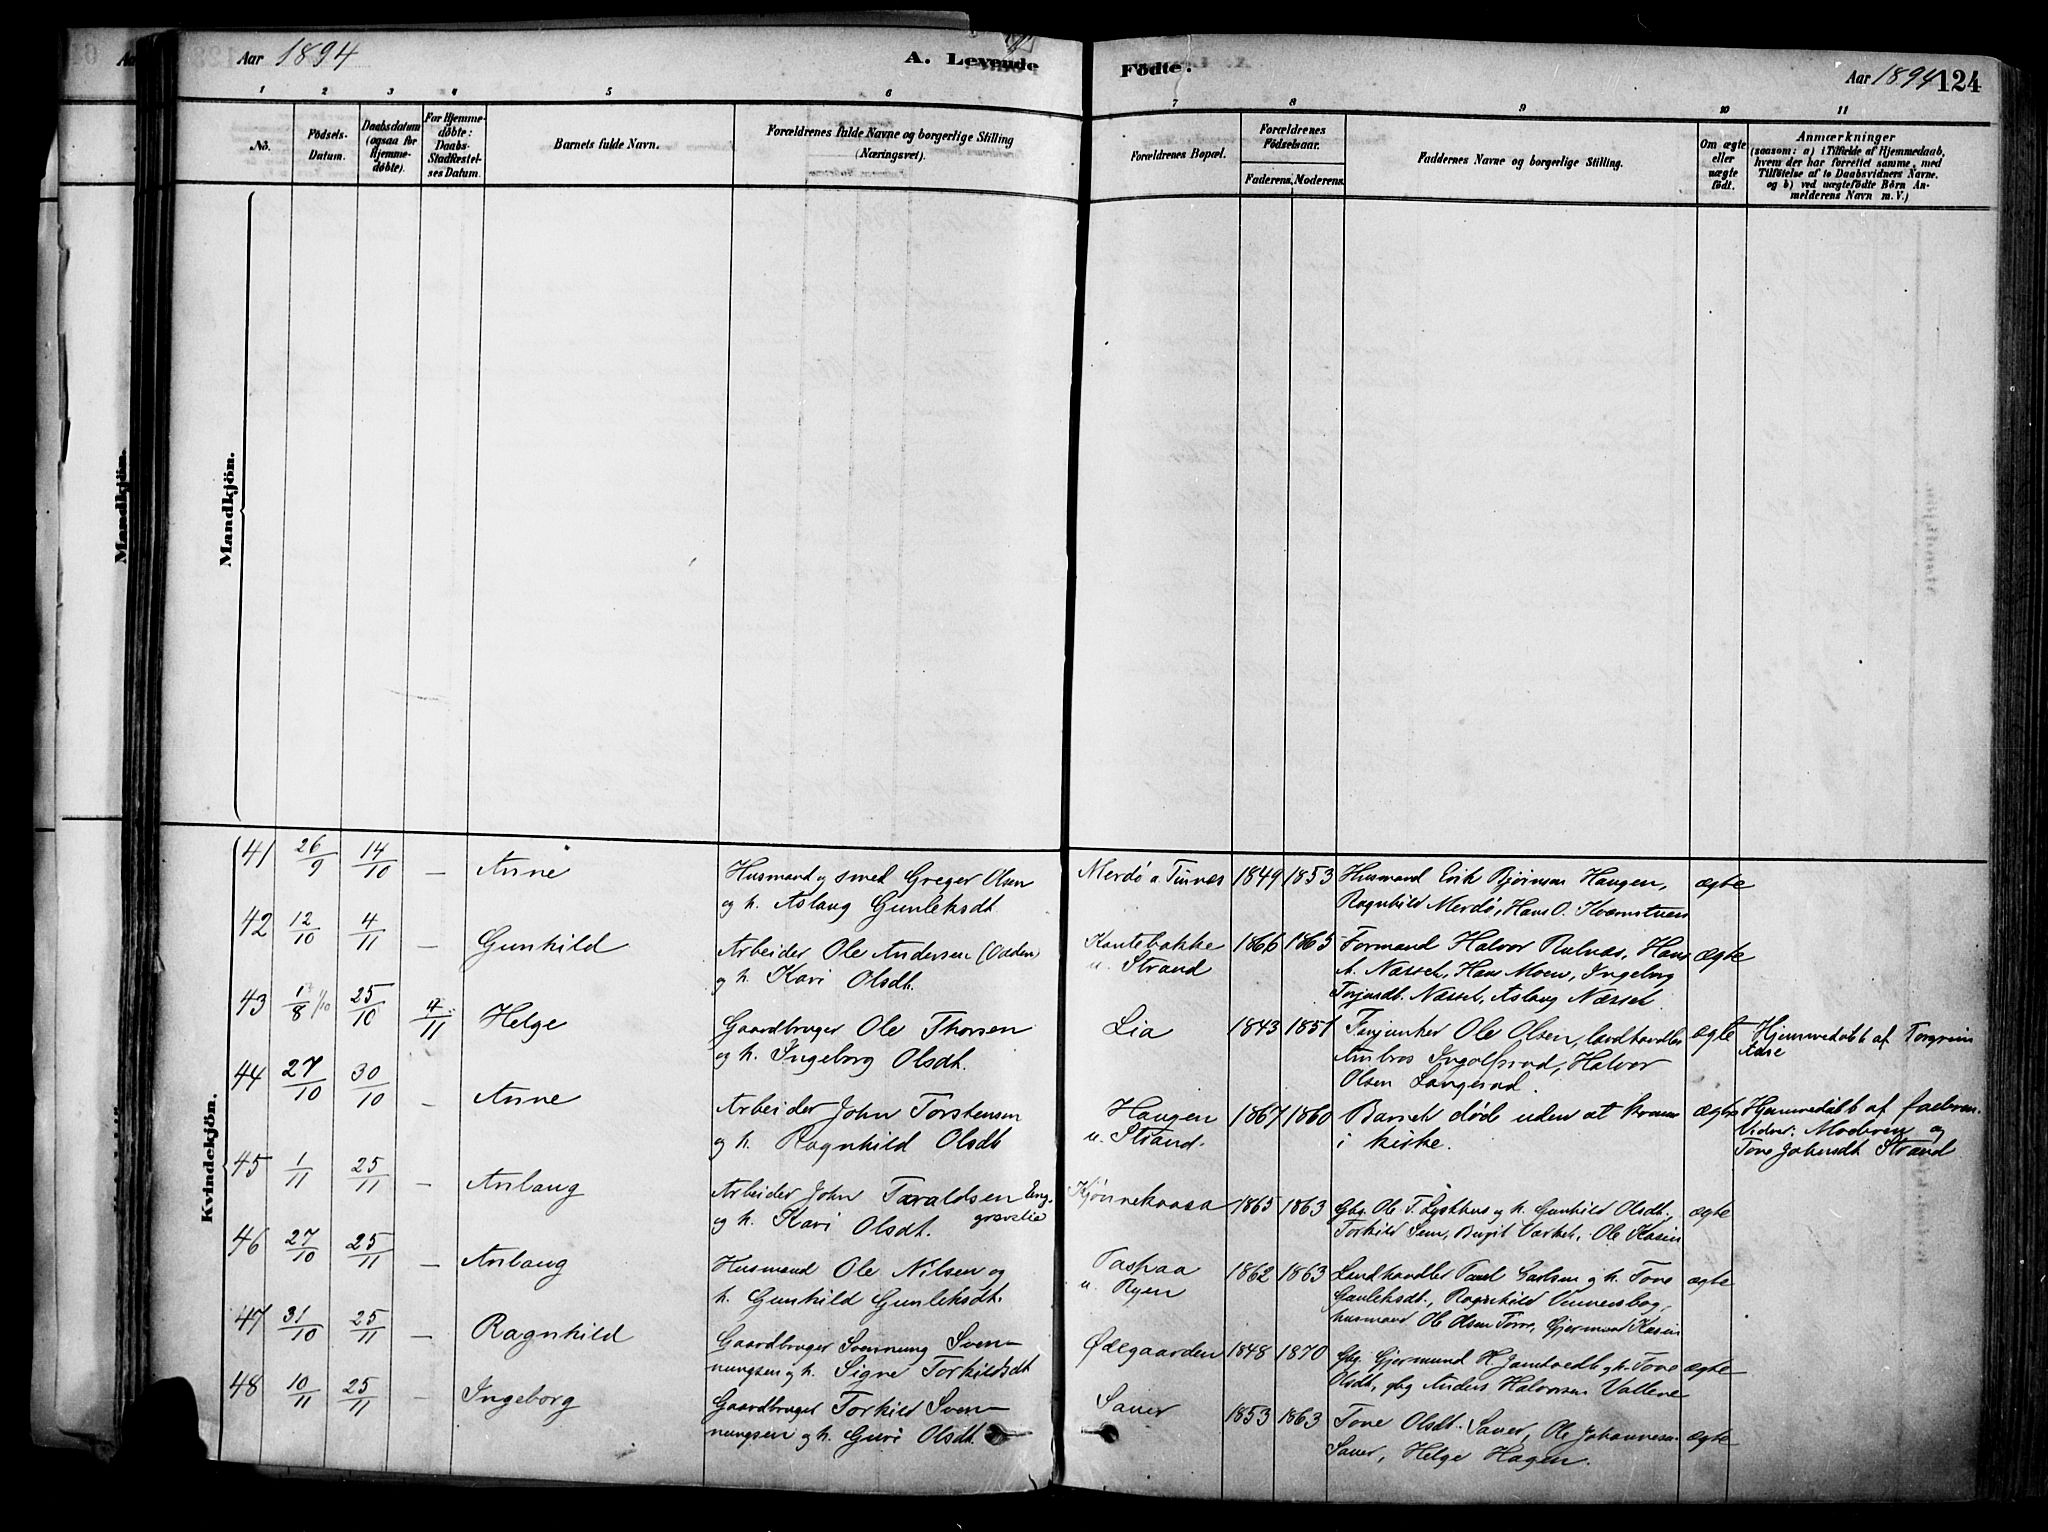 Aar 1894
A. Levende
Födte.
Aar 1894 124
1 2 3 4 5 6 7 8 9 10 11
No.
Födsels-
Datum.
Daabsdatum
(ogsaa for
Hjemme-
døbte).
For Hjemme-
døbte:
Daabs-
Stadfæstel-
ses Datum.
Barnets fulde Navn.
Forældrenes fulde Navne og borgerlige Stilling
(Næringsvei).
Forældrenes Bopæl.
Forældrenes
Födselsaar.
Faderens. Moderens.
Faddernes Navne og borgerlige Stilling.
Om ægte
eller
uægte
født.
Anmærkninger
(saasom: a) i Tilfælde af Hjemmedaab,
hvem der har forrettet samme, med
Tilföielse af to Daabsvidners Navne.
og b) ved uægtefödte Börn An-
melderens Navn m. V.)
Mandkjön.
Mandkjön.
Kvindekjön.
41 26/9 14/10 — Anne
Husmand og smed Greger Olsen
og h. Aslaug Gunleksdt.
Merdø u. Tinnes 1849 1853
Husmand Erik Bjørnsen Haugen,
Ragnhild Merdø, Hans O. Kvernstuen
ægte
42 12/10 4/11 — Gunhild
Arbeider Ole Andersen (Vaden)
og h. Kari Olsdt.
Kontebakke
u. Strand
1866 1865
Formand Halvor Rulnæs, Hans
A. Næsset, Hans Moen, Ingeborg
Torjusdt. Næsset, Aslaug Næsset
ægte
43 1/8 1/10 25/10 4/11 Helge
Gaardbruger Ole Thorsen
og h. Ingeborg Olsdt.
Lia 1843 1851
Fanjunker Ole Olsen, landhandler
Ambros Ingolfsrud, Halvor
Olsen Langerud.
ægte
Hjemmedøbt af Torgrim
Aase
44 27/10 30/10 — Anne
Arbeider John Torstensen
og h. Ragnhild Olsdt
Haugen
u. Strand.
1867 1860
Barnet død uden at komme
i kirke.
ægte
Hjemmedøbt af faderen.
Vidner: Moderen og
Tone Johnsdt. Strand
45 1/11 25/11 — Anlaug
Arbeider John Taraldsen Eng-
gravelie
og h. Kari Olsdt.
Kjønnekaasa 1865 1863
Gbr. Ole T. Lysthus og h. Gunhild Olsdt.,
Torkild Sem, Birgit Værket, Ole Kasin
ægte
46 27/10 25/11 — Anlaug
Husmand Ole Nilsen og
h. Gunhild Gunleksdt.
Taspaa
u. Ryen
1862 1863
Landhandler Paul Garlsen og h. Tone
Gunleksdt., Ragnhild Vennersborg,
husmand Ole Olsen Torv, Gjermund Kasin
ægte
47 31/10 25/11 — Ragnhild
Gaardbruger Svennung Sven-
nungsen og h. Signe Torkildsdt
Ødegaarden 1848 1870
Gbg. Gjermund H. Jamtvedt og h. Tone
Olsdt, gbg Anders Halvorsen Vallene
ægte
48 10/11 25/11 — Ingeborg
Gaardbruger Torkild Sven-
nungsen og h. Guri Olsdt.
Sauer 1853 1863
Tone Olsdt. Sauer, Ole Johannesen
Sauer, Helge Hagen.
ægte